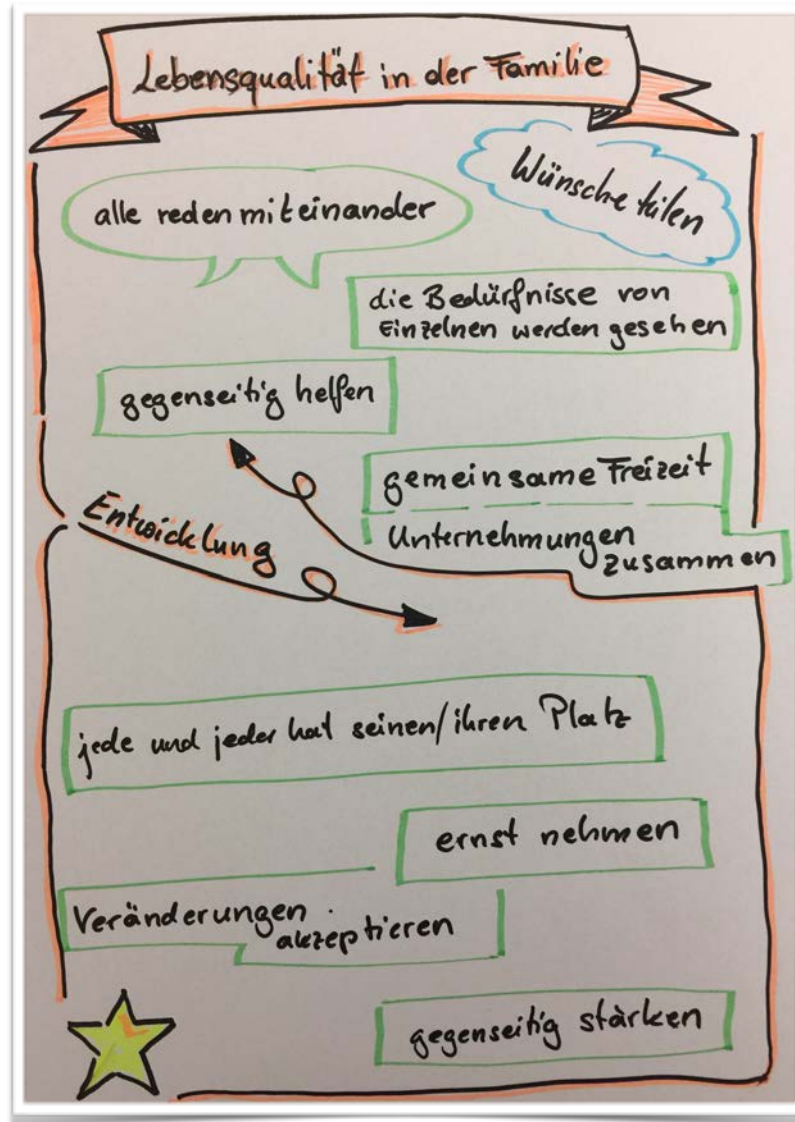 Lebensqualität in der Familie
Wünsche teilen
alle reden miteinander
die Bedürfnisse von
Einzelnen werden gesehen
gegenseitig helfen
gemeinsame Freizeit
Unternehmungen
zusammen
Entwicklung
jede und jeder hat seinen/ihren Platz
ernst nehmen
Veränderungen
akzeptieren
gegenseitig stärken